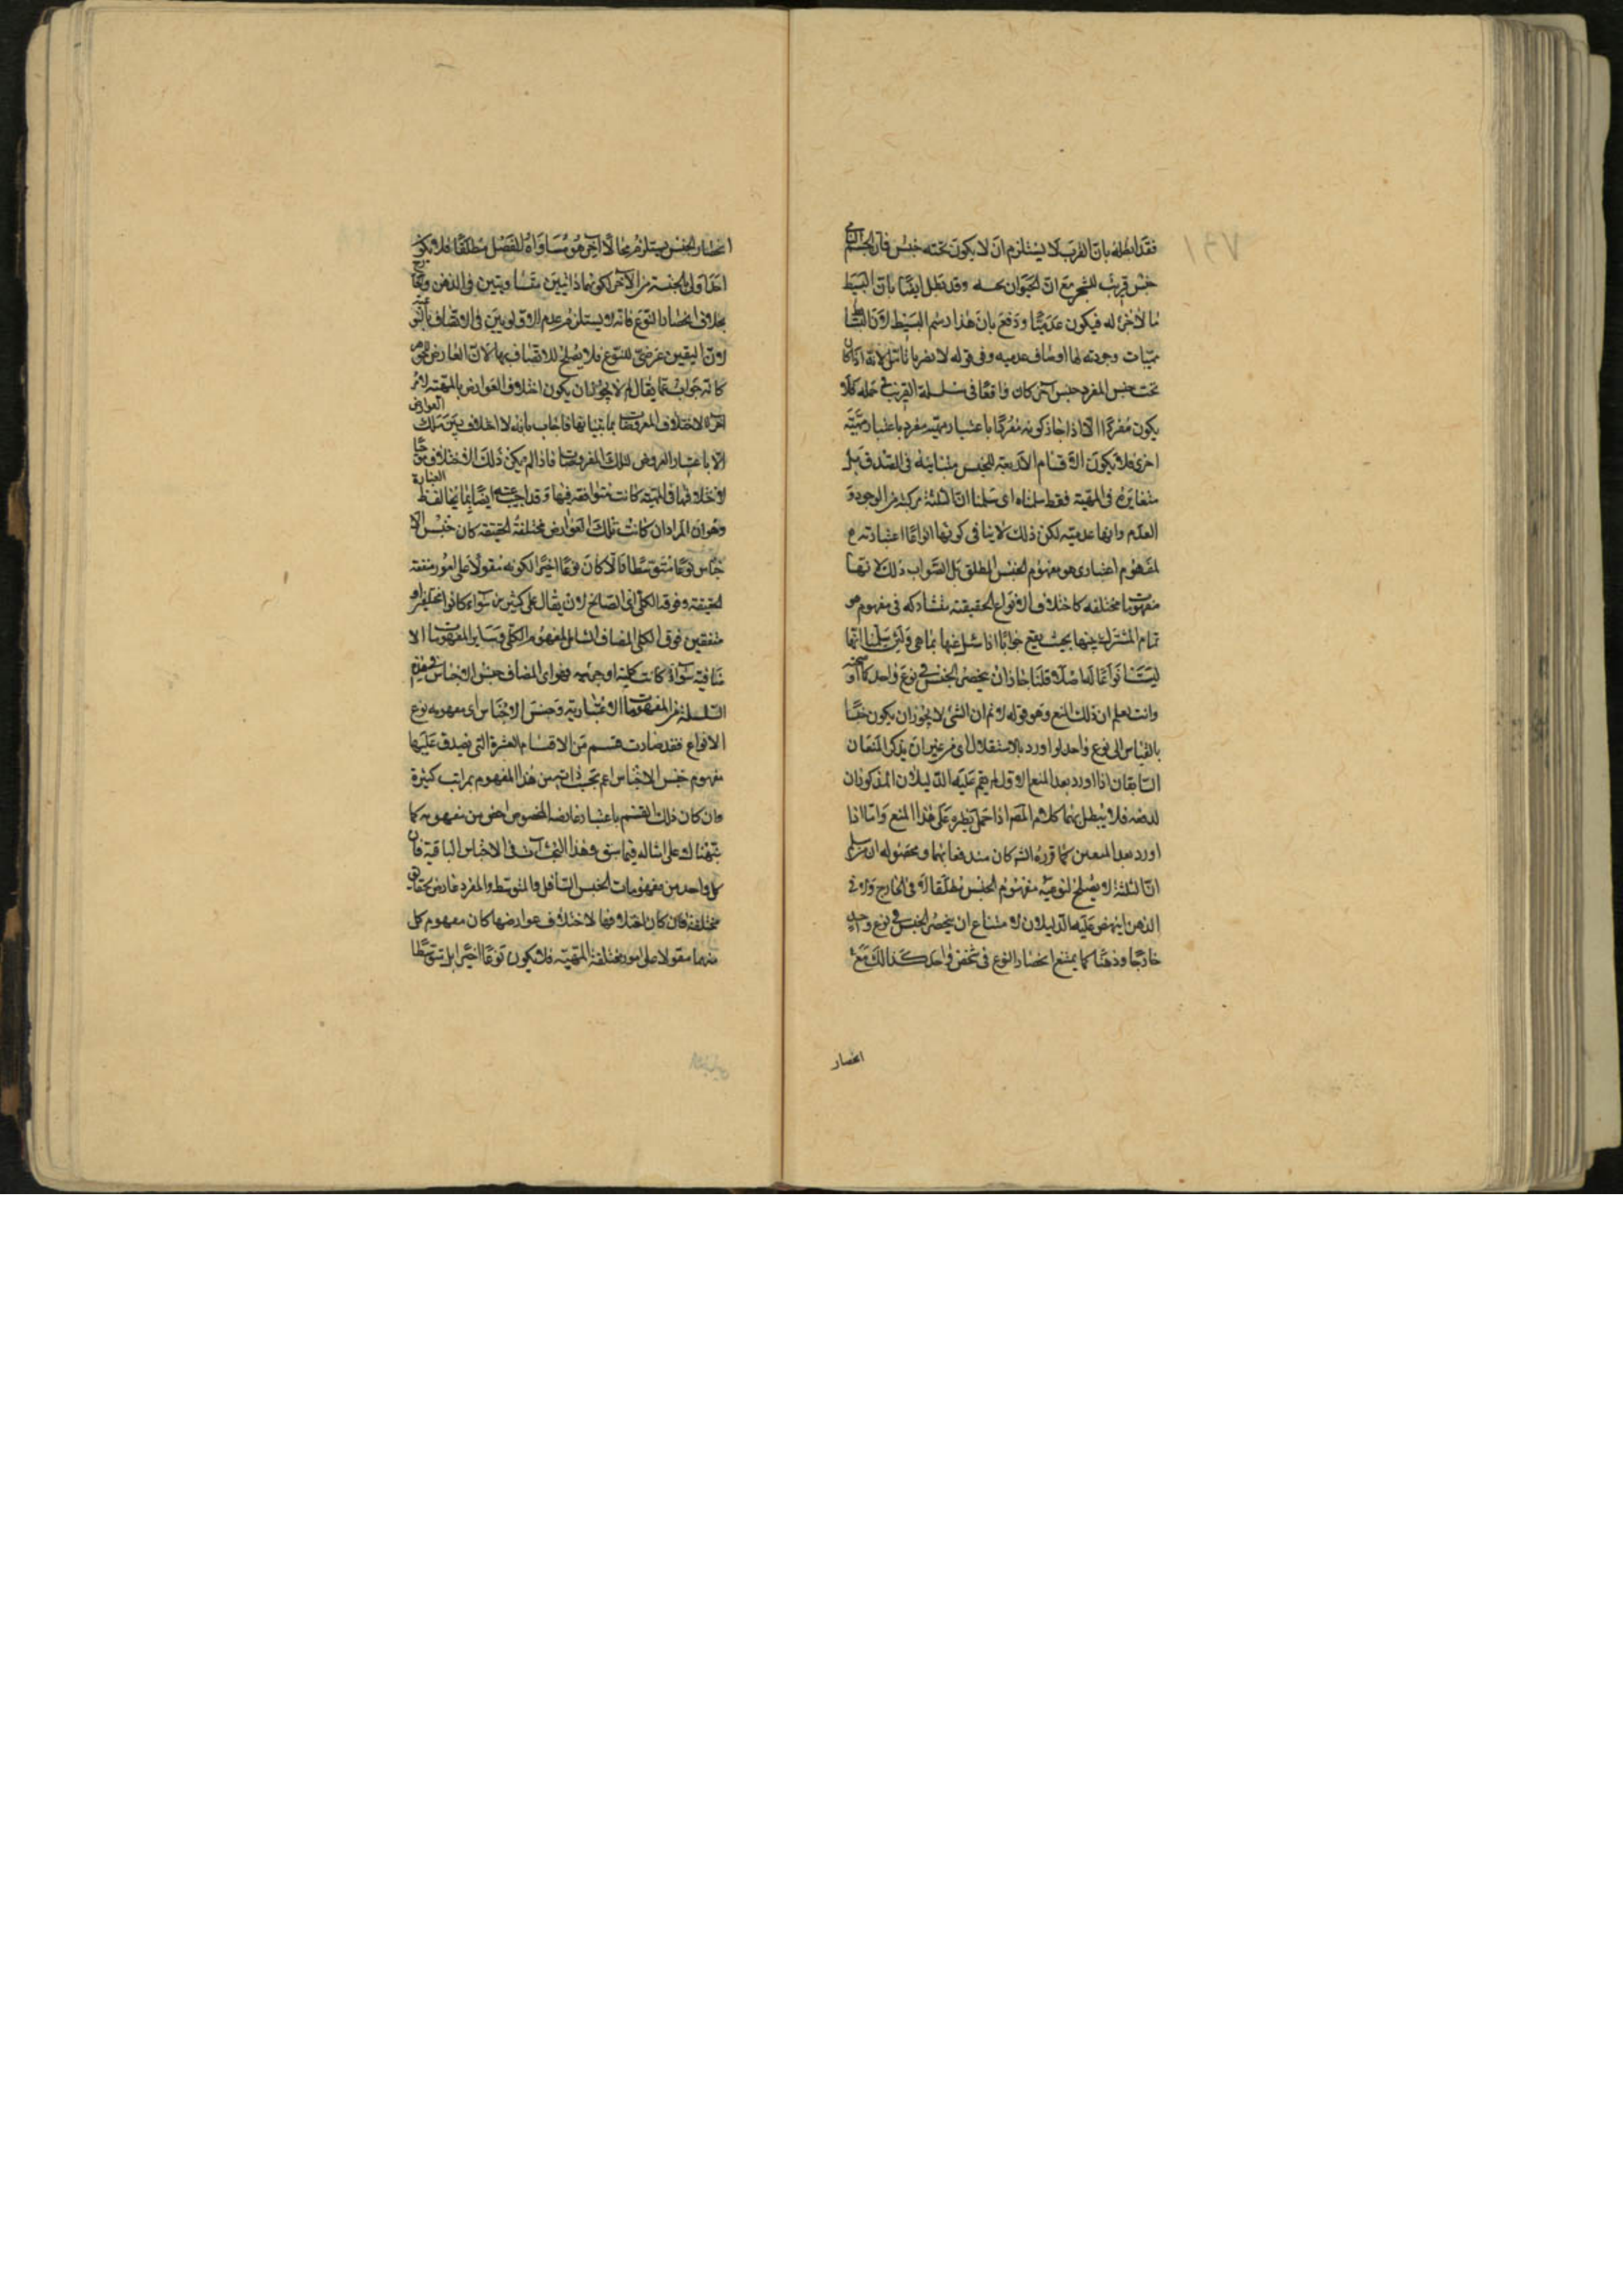 فقد ابطله بان القرب لا يستلزم ان لا يكون تحته جنس فان الجسم النامى
جنس قريب للشجر مع ان الحيوان تحته وقد تطلى ايضا بان البسيط
ما لا جزء له فيكون عدميا ودفع بان هذا رسم البسيط لان
وجوديه لها اوصاف عدميه وفى قوله لانه اذا كان
تحت جنس المفرد جنس آخر كان واقعا فى سلسلة القريب
يكون مفردا الا اذا جاز كونه مفردا باعتبار مهيته مفرد باعتبار مهيته
اخرى فلا يكون الاقسام الاربعة للجنس متباينه فى الصدق بل
متغايره فى المهية فقط سلمناه اى سلمنا ان الثلثة مركبة من الوجود و
العدم وانها عدميته لكن ذلك لا ينافى كونها انواعا اعتباريه
لمفهوم اعتبارى هو مفهوم الجنس المطلق بل الصواب ذلك لانها
مفهومات مختلفه كاختلاف الانواع الحقيقية متشاركه فى مفهوم هو
تمام المشترك بينها بحيث يقع جوابا اذا سئل عنها بما هى ولئن سلمنا انها
ليست انواعا له اصلا قلنا جاز ان ينحصر الجنس فى نوع واحد
وانت تعلم ان ذلك المنع وهو قوله لا نم ان الشئ لا يجوز ان يكون جنسا
بالقياس الى نوع واحد لو اورد بالاستقلال اى من غير ان يذكر المنعان
السابقان اذا اورد بعد المنع الاول لم يقم عليه الدليلان المذكوران
لدفعه فلا يبطل بهما كلام المصر اذا حمل نظره على هذا المنع واما اذا
اورد بعد المنعين كما قرره الشر كان مندفعا بهما ومحصوله ان
ان الثلثة لا يصلح لنوعية مفهوم الجنس مطلقا لا فى الخارج ولا فى
الذهن ينهض عليه الدليلان لامتناع ان ينحصر الجنس فى نوع واحد
خارجا وذهنا كما يمتنع انحصار النوع فى شخص واحد كذلك
انحصار
انحصار الجنس يستلزم محالا آخر هو مساواة للفصل مطلقا فلا يكون
احدهما اولى بالجنسية من الآخر لكونهما ذاتيين متساويين فى الذهن
بخلاف انحصار النوع فانه لا يستلزم عدم الاولويه فى الاتصاف بالنوعية
لان التعين عرضى للنوع فلا يصلح للاتصاف بها لان العارض
كانه جواب عما يقال لم لا يجوز ان يكون اختلاف العوارض بالمهية لامر
آخر لا لاختلاف المعروضات فاجاب بانه لا اختلاف بين تلك العوارض
الا باعتبار العروض لتلك المعروضات فاذا لم يكن ذلك الاختلاف موجبا
لاختلافها فى المهية كانت متوافقه فيها وقد اجيب عنه ايضا بما يخالف العبارة
وهو ان المراد ان كانت تلك العوارض مختلفة الحقيقة كان جنس الا
جناس نوعا متوسطا والا كان نوعا اخيرا لكونه مقولا على امور متفقة
الحقيقة وفوقه الكلى اى الصالح لان يقال على كثيرين سواء كانوا مختلفين او
متفقين فوق الكلى المضاف الشامل لمفهوم الكلى وسائر المفهومات الا
ضافية سواء كانت كلية او جزئيه وهو اى المضاف جنس الاجناس فى هذه
السلسلة من المفهومات الاعتبارية وجنس الاجناس اى مفهومه نوع
الانواع فقد صارت قسم من الاقسام العشرة التى يصدق عليها
مفهوم جنس الاجناس اعم بحسب ذاته من هذا المفهوم بمراتب كثيرة
وان كان ذلك القسم باعتبار عارضه المخصوص اخص من مفهومه كما
نبهناك على امثاله فيما سبق وهذا البحث آت فى الاجناس الباقية فان
كل واحد من مفهومات الجنس السافل والمتوسط والمفرد عارض لحقائق
مختلفة فان كان اختلافها لاختلاف عوارضها كان مفهوم كل
منهما مقولا على امور مختلفة المهية فلا يكون نوعا اخيرا بل متوسطا